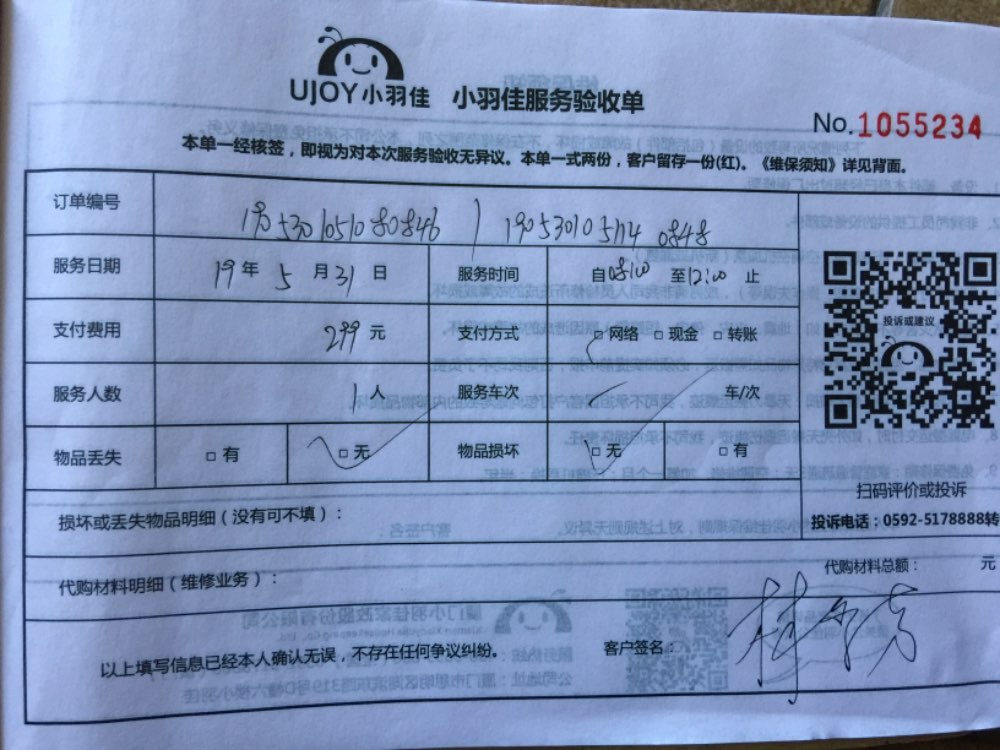 UJOY小羽佳 小羽佳服务验收单
No.1055234
本单一经核签，即视为对本次服务验收无异议。本单一式两份，客户留存一份(红)。《维保须知》详见背面。
订单编号
服务日期 19 年 5 月 31 日 服务时间 自08:00 至12:00 止
投诉或建议
支付费用 299 元 支付方式 □ 网络 □ 现金 □ 转账
服务人数 1 人 服务车次 车/次
物品丢失 □ 有 □ 无 物品损坏 □ 无 □ 有
扫码评价或投诉
损坏或丢失物品明细（没有可不填）：
投诉电话：0592-5178888转
代购材料明细（维修业务）：
代购材料总额： 元
以上填写信息已经本人确认无误，不存在任何争议纠纷。 客户签名：